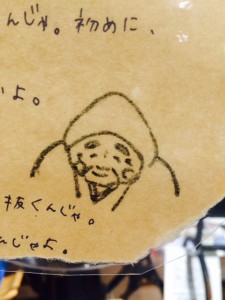 んじゃ。初めに、
よ。
板くんじゃ。
じゃよ。